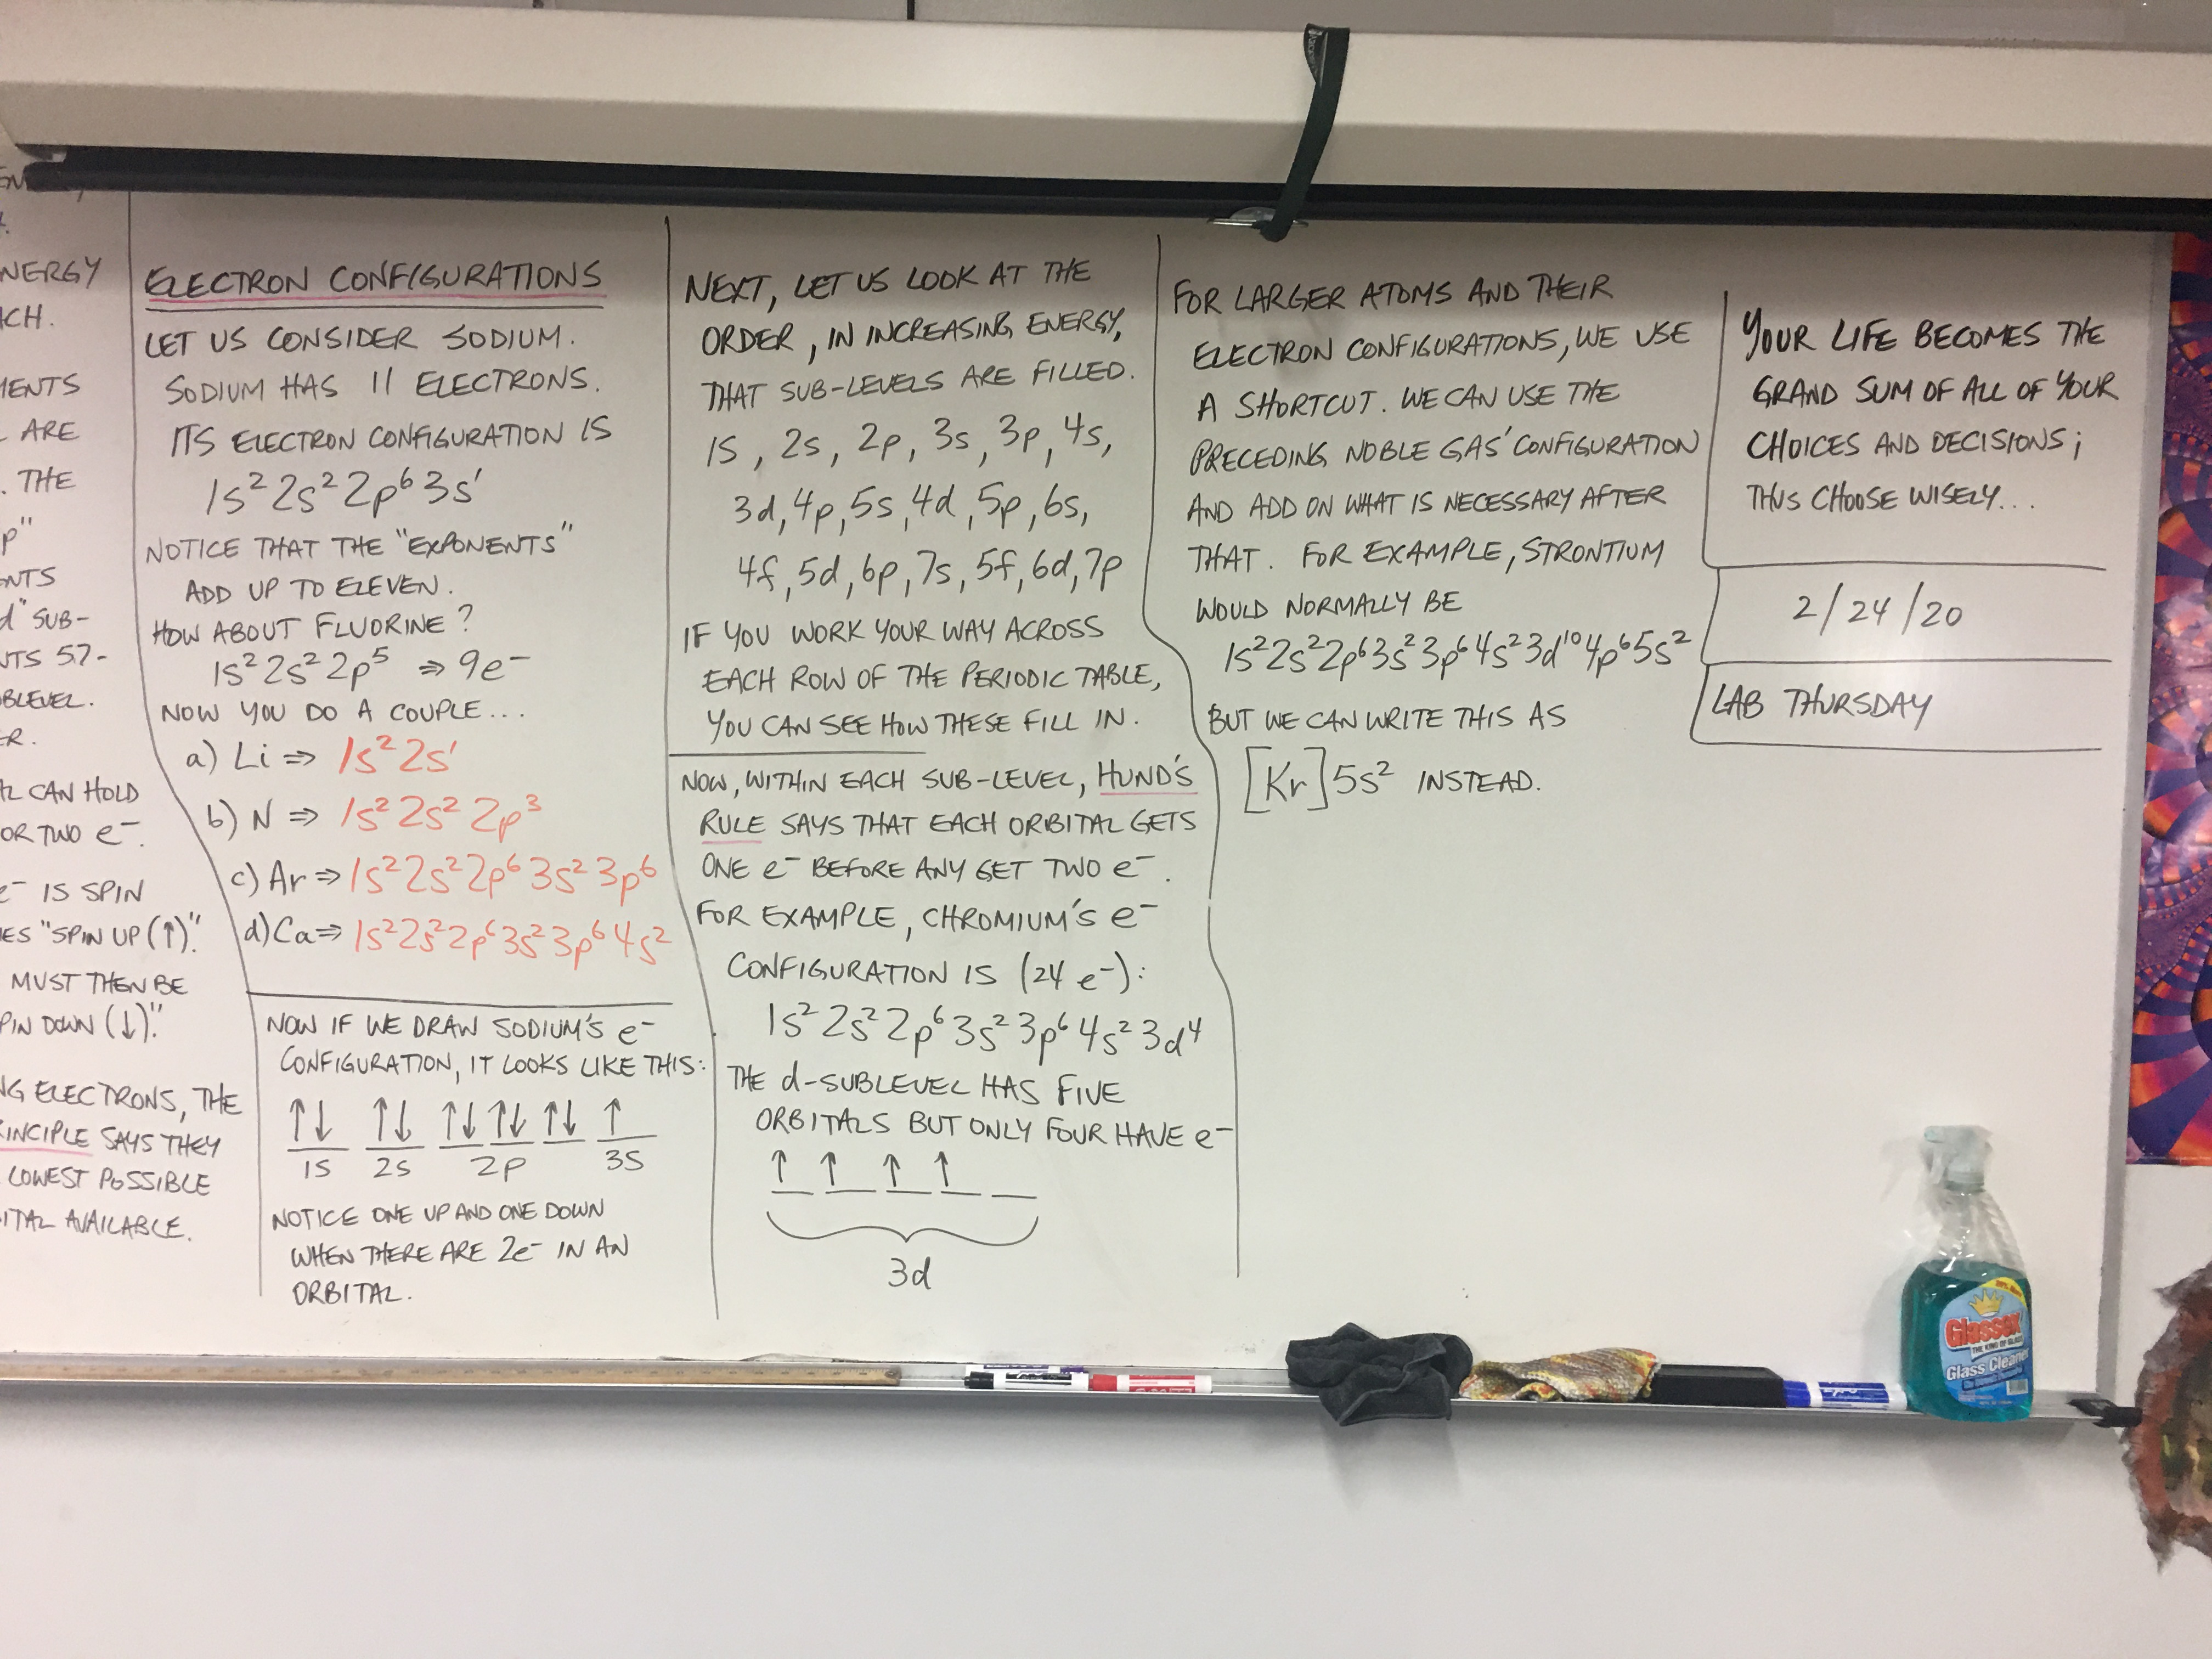 NERGY
ACH.
MENTS
ARE
. THE
P"
ENTS
d" SUB-
NTS 57-
BLEVEL.
ER.
AL CAN HOLD
OR TWO e⁻.
e⁻ IS SPIN
ES "SPIN UP (↑)."
MUST THEN BE
PIN DOWN (↓)."
NG ELECTRONS, THE
RINCIPLE SAYS THEY
LOWEST POSSIBLE
ITAL AVAILABLE.
ELECTRON CONFIGURATIONS
LET US CONSIDER SODIUM.
SODIUM HAS 11 ELECTRONS.
ITS ELECTRON CONFIGURATION IS
1s² 2s² 2p⁶ 3s¹
NOTICE THAT THE "EXPONENTS"
ADD UP TO ELEVEN.
HOW ABOUT FLUORINE?
1s² 2s² 2p⁵ ⇒ 9e⁻
NOW YOU DO A COUPLE...
a) Li ⇒ 1s² 2s¹
b) N ⇒ 1s² 2s² 2p³
c) Ar ⇒ 1s² 2s² 2p⁶ 3s² 3p⁶
d) Ca ⇒ 1s² 2s² 2p⁶ 3s² 3p⁶ 4s²
NOW IF WE DRAW SODIUM'S e⁻
CONFIGURATION, IT LOOKS LIKE THIS:
↑↓ ↑↓ ↑↓ ↑↓ ↑↓ ↑
1s 2s 2p 3s
NOTICE ONE UP AND ONE DOWN
WHEN THERE ARE 2e⁻ IN AN
ORBITAL.
NEXT, LET US LOOK AT THE
ORDER, IN INCREASING ENERGY,
THAT SUB-LEVELS ARE FILLED.
1s, 2s, 2p, 3s, 3p, 4s,
3d, 4p, 5s, 4d, 5p, 6s,
4f, 5d, 6p, 7s, 5f, 6d, 7p
IF YOU WORK YOUR WAY ACROSS
EACH ROW OF THE PERIODIC TABLE,
YOU CAN SEE HOW THESE FILL IN.
NOW, WITHIN EACH SUB-LEVEL, HUND'S
RULE SAYS THAT EACH ORBITAL GETS
ONE e⁻ BEFORE ANY GET TWO e⁻.
FOR EXAMPLE, CHROMIUM'S e⁻
CONFIGURATION IS (24 e⁻):
1s² 2s² 2p⁶ 3s² 3p⁶ 4s² 3d⁴
THE d-SUBLEVEL HAS FIVE
ORBITALS BUT ONLY FOUR HAVE e⁻
↑ ↑ ↑ ↑
3d
FOR LARGER ATOMS AND THEIR
ELECTRON CONFIGURATIONS, WE USE
A SHORTCUT. WE CAN USE THE
PRECEDING NOBLE GAS' CONFIGURATION
AND ADD ON WHAT IS NECESSARY AFTER
THAT. FOR EXAMPLE, STRONTIUM
WOULD NORMALLY BE
1s² 2s² 2p⁶ 3s² 3p⁶ 4s² 3d¹⁰ 4p⁶ 5s²
BUT WE CAN WRITE THIS AS
[Kr] 5s² INSTEAD.
YOUR LIFE BECOMES THE
GRAND SUM OF ALL OF YOUR
CHOICES AND DECISIONS;
THUS CHOOSE WISELY...
2/24/20
LAB THURSDAY
Glassex
THE KING OF GLASS
Glass Cleaner